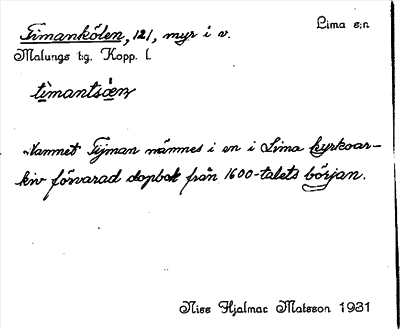 Timankölen, 121, myr i v.
Lima s:n
Malungs t:g. Kopp. l.
tìmantsö̀en
Namnet Tijman nämnes i en i Lima kyrkoar-
kiv förvarad dopbok från 1600-talets början.
Niss Hjalmar Matsson 1931